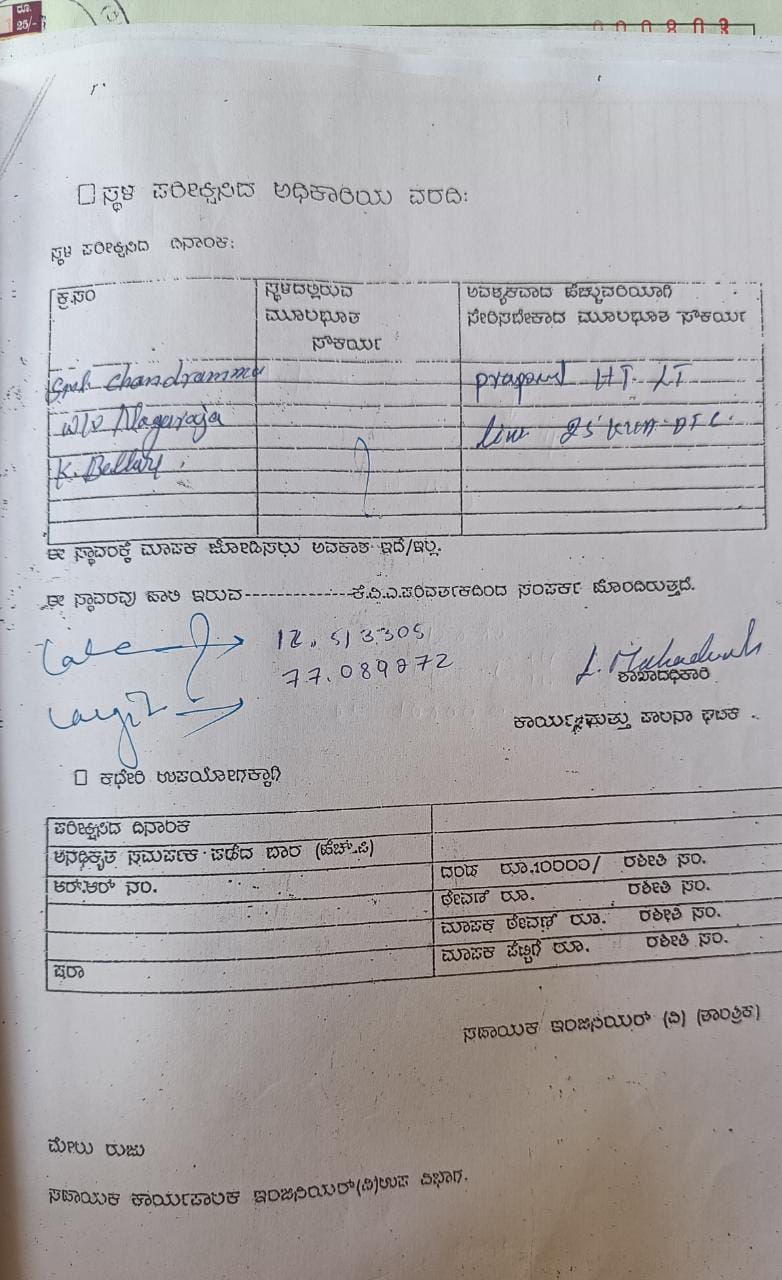 ರೂ.
25/-
☐ ಸ್ಥಳ ಪರೀಕ್ಷಿಸಿದ ಅಧಿಕಾರಿಯ ವರದಿ:
ಸ್ಥಳ ಪರೀಕ್ಷಿಸಿದ ದಿನಾಂಕ:
ಕ್ರ.ಸಂ ಸ್ಥಳದಲ್ಲಿರುವ ಮೂಲಭೂತ ಸೌಕರ್ಯ ಅವಶ್ಯಕವಾದ ಹೆಚ್ಚುವರಿಯಾಗಿ ಸೇರಿಸಬೇಕಾದ ಮೂಲಭೂತ ಸೌಕರ್ಯ
Smt. Chandramma
W/o Nagaraja
K. Bellur.
line 25 KVA
ಈ ಸ್ಥಾವರಕ್ಕೆ ಮಾಪಕ ಜೋಡಿಸಲು ಅವಕಾಶ ಇದೆ/ಇಲ್ಲ.
ಈ ಸ್ಥಾವರವು ಹಾಲಿ ಇರುವ-------------ಕೆ.ವಿ.ಎ.ಪರಿವರ್ತಕದಿಂದ ಸಂಪರ್ಕ ಹೊಂದಿರುತ್ತದೆ.
12.513305
77.089872
ಶಾಖಾಧಿಕಾರಿ
ಕಾರ್ಯ ಮತ್ತು ಪಾಲನಾ ಘಟಕ
☐ ಕಛೇರಿ ಉಪಯೋಗಕ್ಕಾಗಿ
ಪರೀಕ್ಷಿಸಿದ ದಿನಾಂಕ
ಅನಧಿಕೃತ ಸಮರ್ಪಕ ಪಡೆದ ಬಾರ (ಹೆಚ್.ಪಿ)
ಆರ್.ಆರ್ ನಂ. ದಂಡ ರೂ.10000/ ರಶೀತಿ ಸಂ.
ಠೇವಣಿ ರೂ. ರಶೀತಿ ಸಂ.
ಮಾಪಕ ಠೇವಣಿ ರೂ. ರಶೀತಿ ಸಂ.
ಷರಾ ಮಾಪಕ ಪೆಟ್ಟಿಗೆ ರೂ. ರಶೀತಿ ಸಂ.
ಸಹಾಯಕ ಇಂಜಿನಿಯರ್ (ವಿ) (ತಾಂತ್ರಿಕ)
ಮೇಲು ರುಜು
ಸಹಾಯಕ ಕಾರ್ಯಪಾಲಕ ಇಂಜಿನಿಯರ್(ವಿ)ಉಪ ವಿಭಾಗ.